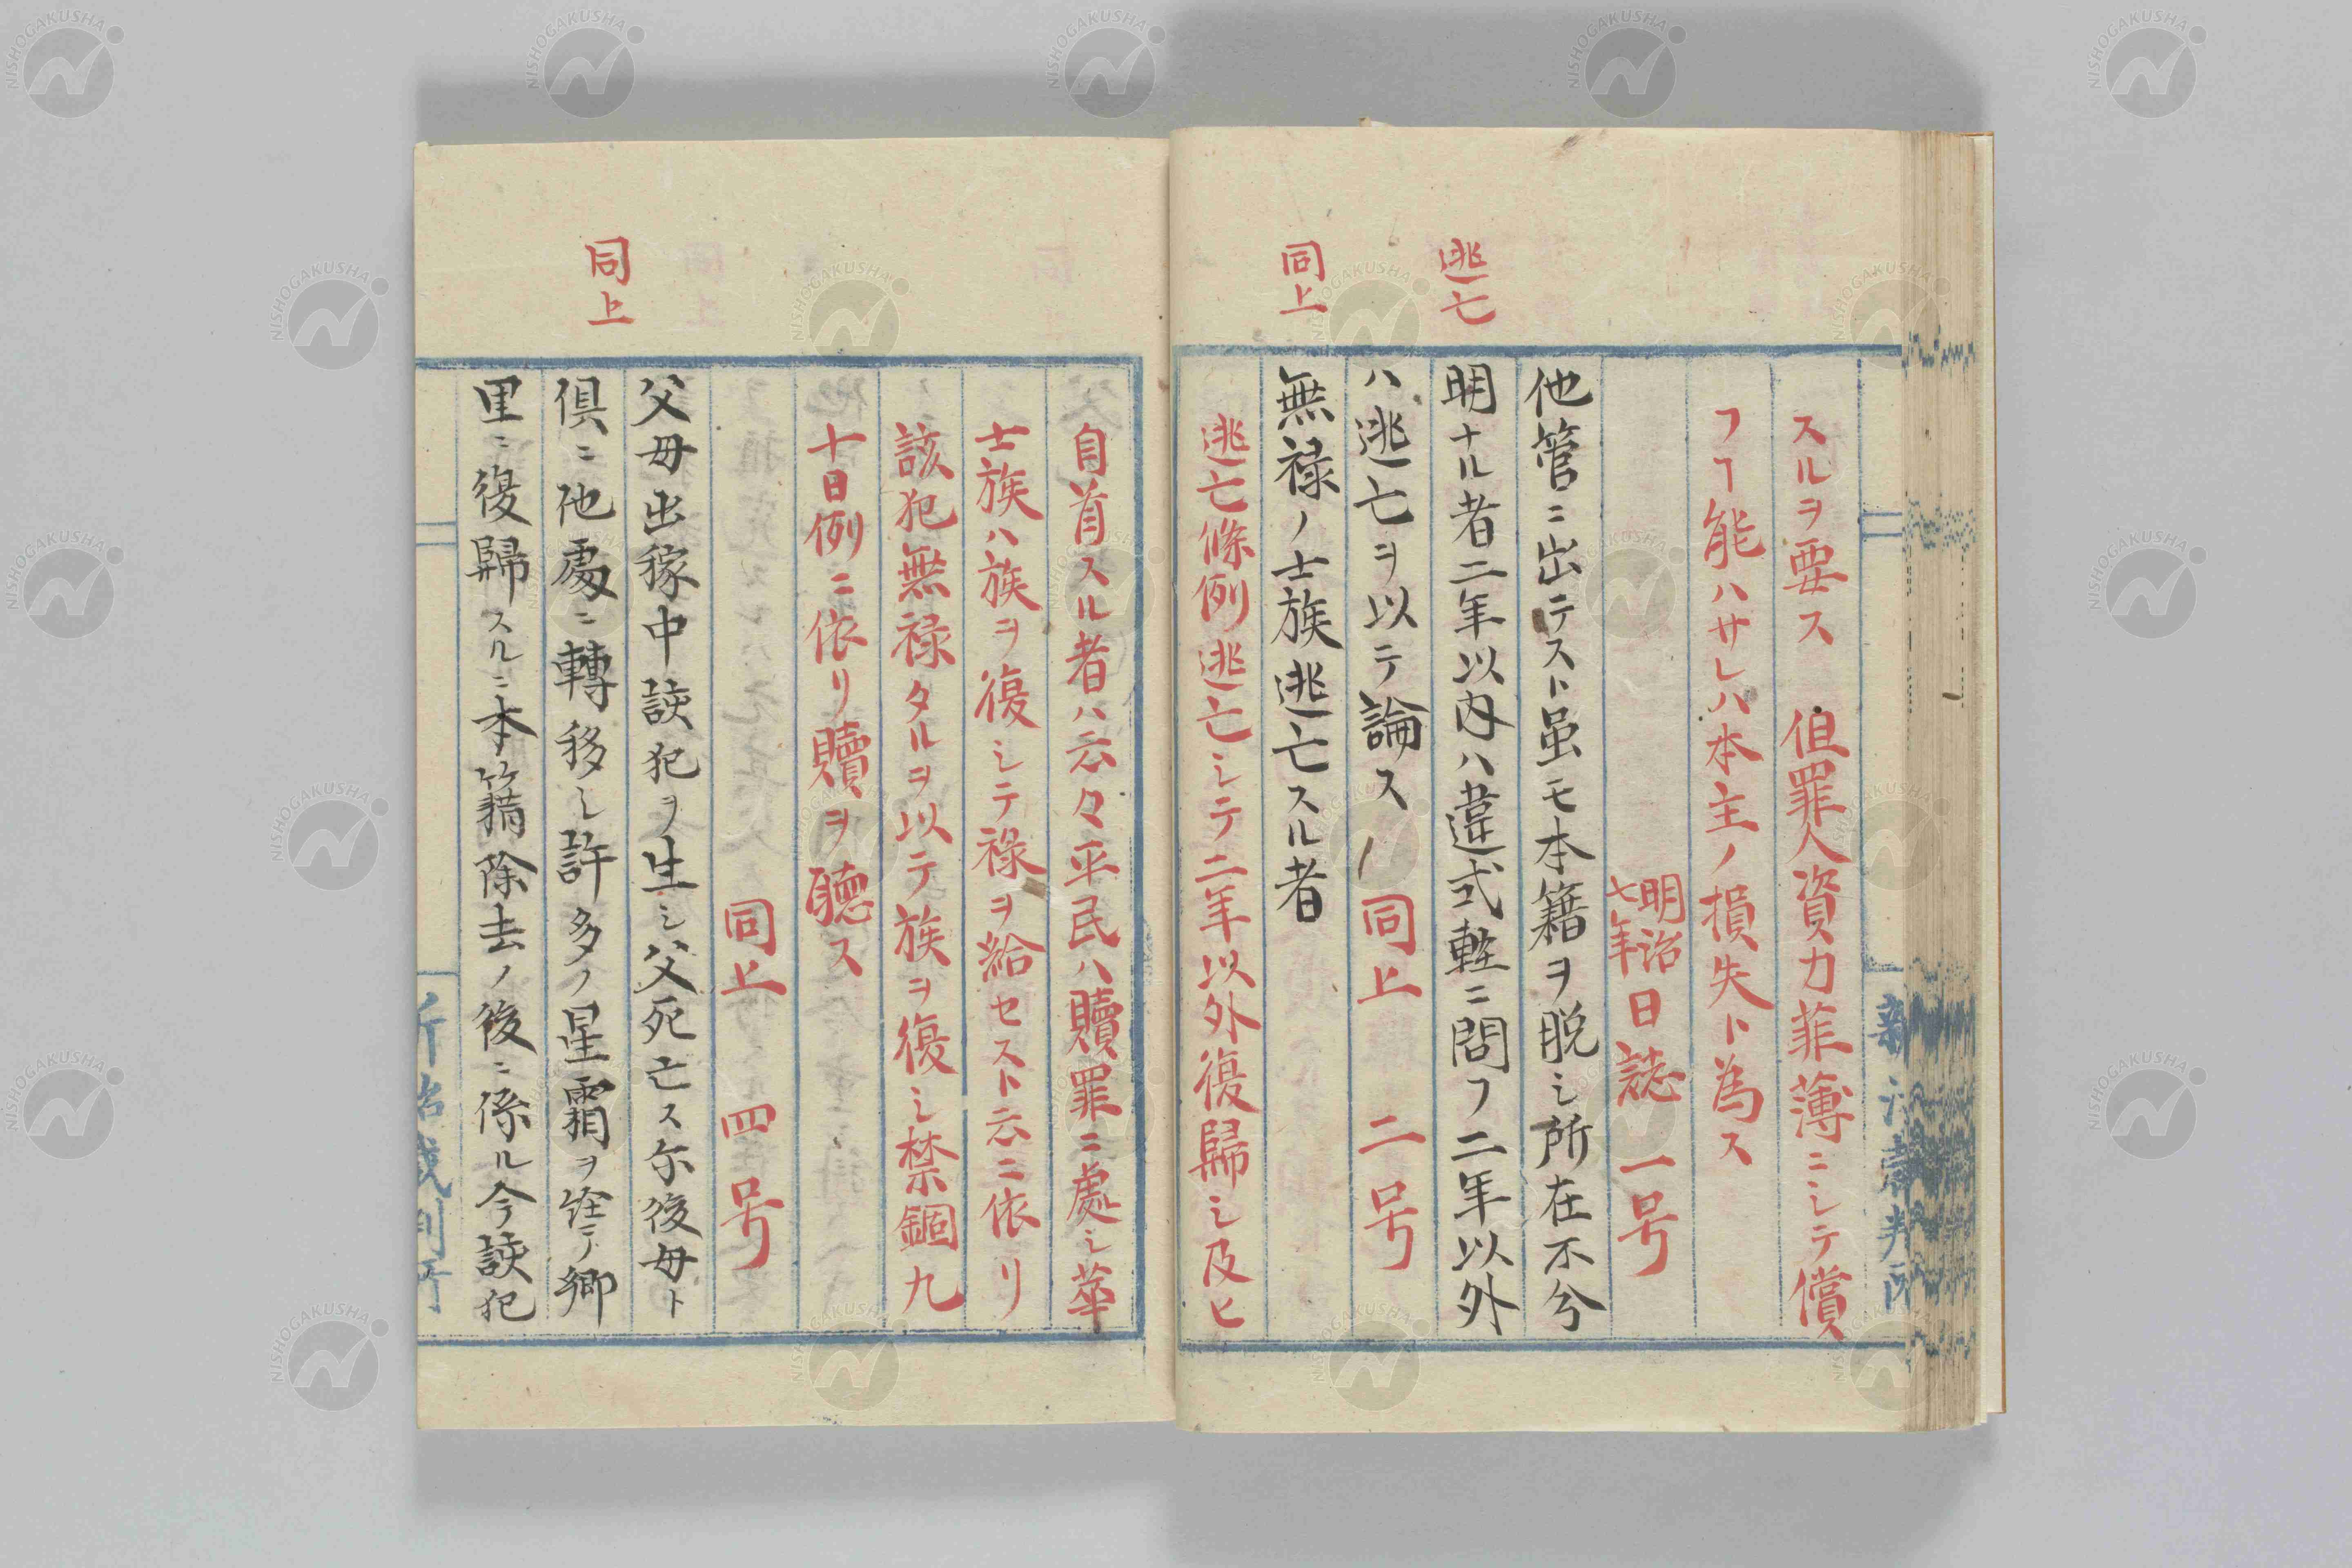 スルヲ要ス　但罪人資力菲薄ニシテ償
フヿ能ハサレハ本主ノ損失ト為ス
明治七年日誌　一号
逃亡
他管ニ出テスト虽モ本籍ヲ脱シ所在不分
明ナル者二年以内ハ違式軽ニ問フ二年以外
ハ逃亡ヲ以テ論ス　同上　二号
同上
無禄ノ士族逃亡スル者
逃亡條例逃亡シテ二年以外復歸シ及ヒ
自首スル者ハ云々平民ハ贖罪ニ處シ華
士族ハ族ヲ復シテ禄ヲ給セスト云ニ依リ
該犯無禄タルヲ以テ族ヲ復シ禁錮九
十日例ニ依リ贖ヲ聴ス
同上　四号
同上
父母出稼中該犯ヲ生シ父死亡ス尓後母ト
倶ニ他處ニ轉移シ許多ノ星霜ヲ経テ郷
里ニ復歸スルニ本籍除去ノ後ニ係ル今該犯
新治裁判所
新治裁判所
NISHOGAKUSHA